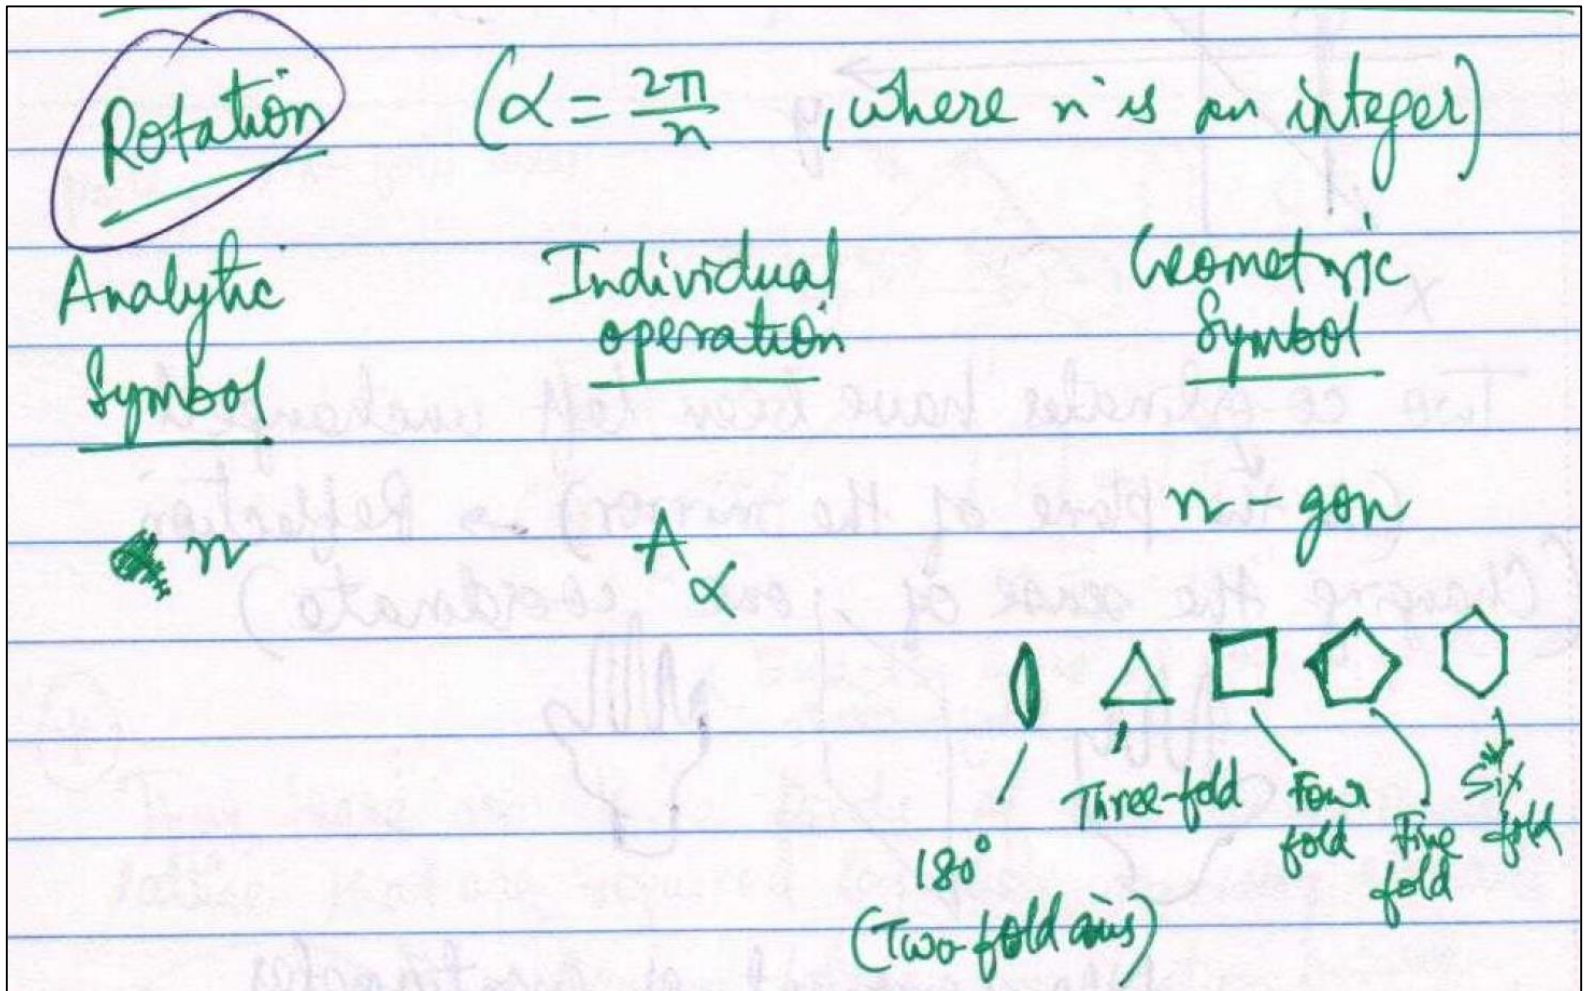 Rotation (α = 2π/n , where n is an integer)
Analytic Symbol
Individual operation
Geometric Symbol
n
A_α
n-gon
180°
(Two-fold axis)
Three-fold
Four fold
Five fold
Six fold